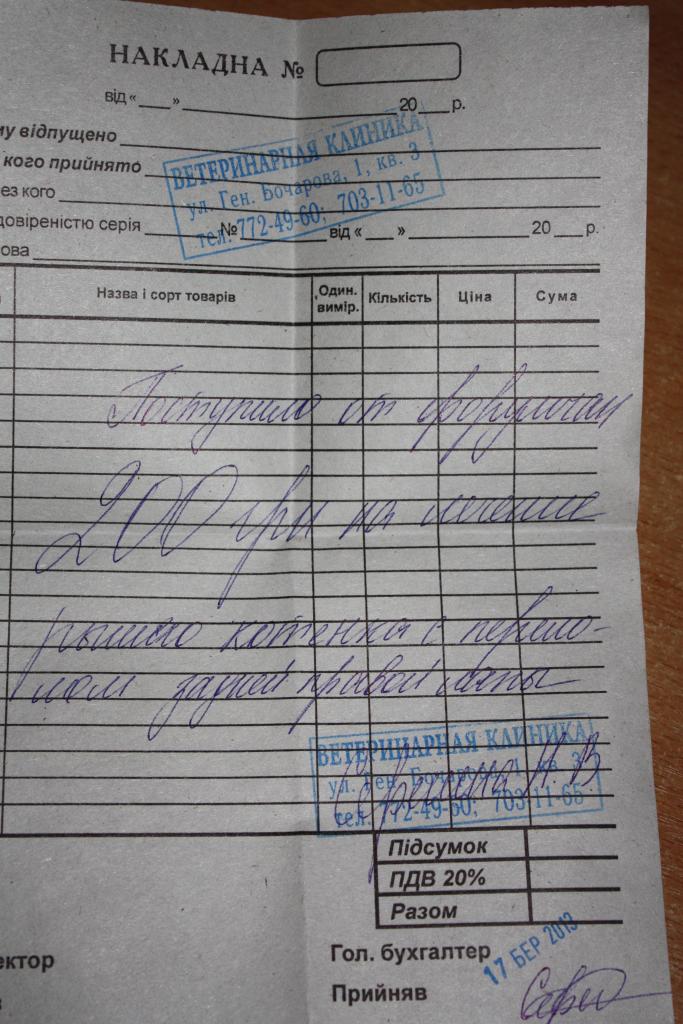 НАКЛАДНА №
від «___»____________ 20___р.
му відпущено
кого прийнято
ез кого
довіреністю серія ______ № ______ від «___» ______ 20___р.
ова
ВЕТЕРИНАРНАЯ КЛИНИКА
ул. Ген. Бочарова, 1, кв. 3
тел. 772-49-60; 703-11-65
Назва і сорт товарів Один. вимір. Кількість Ціна Сума
Поступило от форумчан
200 грн на лечение
рыжего котенка с перело-
мом задней правой лапы
ВЕТЕРИНАРНАЯ КЛИНИКА
ул. Ген. Бочарова, 1, кв. 3
тел. 772-49-60; 703-11-65
Н. В
Підсумок
ПДВ 20%
Разом
ектор
Гол. бухгалтер
17 БЕР 2013
Прийняв